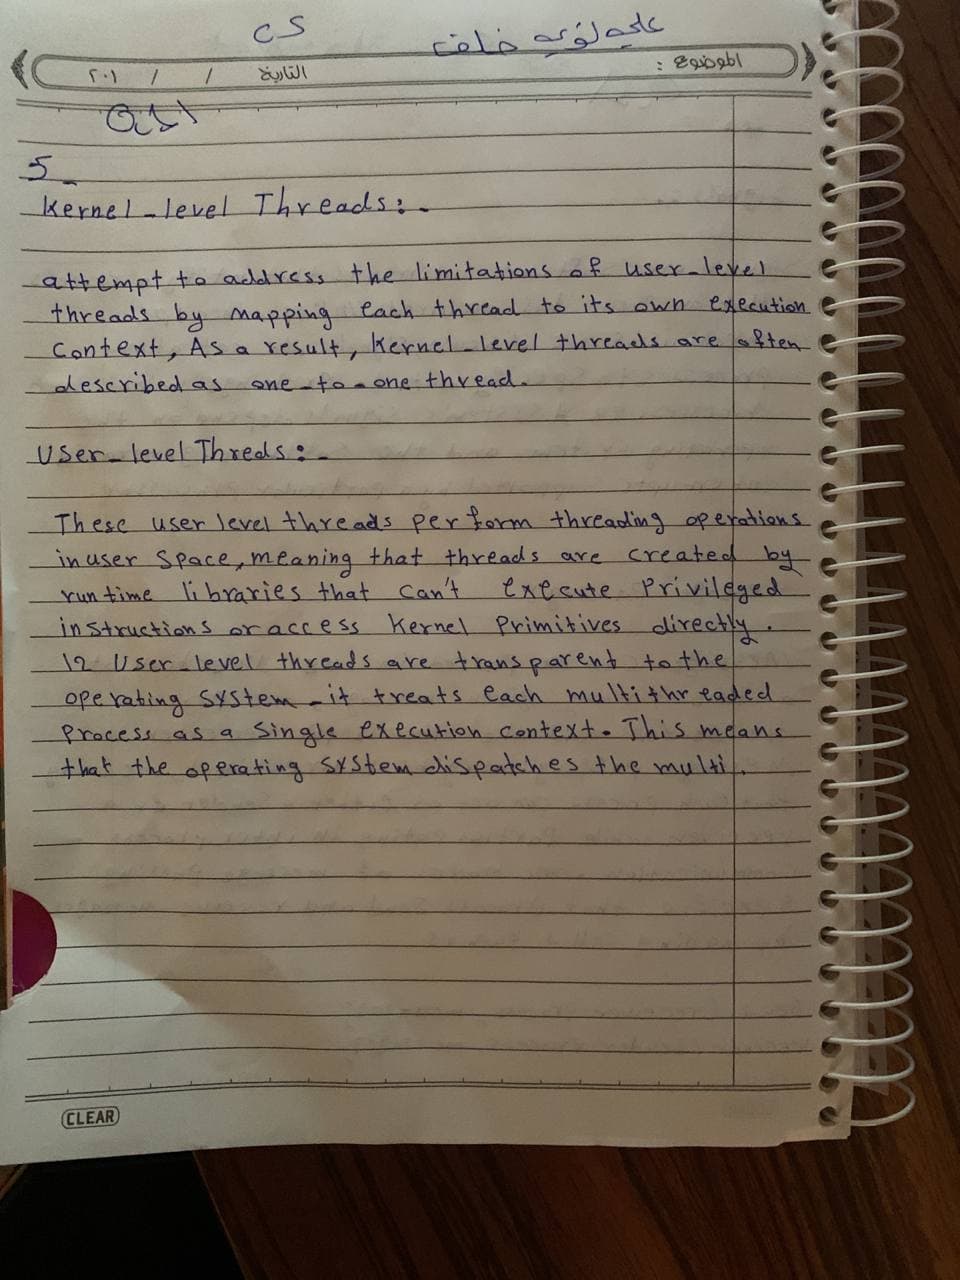 CS
علي لؤي خلف
الموضوع :
التاريخ / / ٢٠١
5-
Kernel-level Threads:-
attempt to address the limitations of user-level
threads by mapping each thread to its own execution
Context, As a result, Kernel-level threads are often
described as one-to-one thread.
User-level Threds:-
These user level threads perform threading operations
in user Space, meaning that threads are created by
runtime libraries that can't execute Privileged
instructions or access Kernel Primitives directly.
12 User-level threads are transparent to the
operating system - it treats each multithreaded
Process as a Single execution context. This means
that the operating system dispatches the multi.
CLEAR